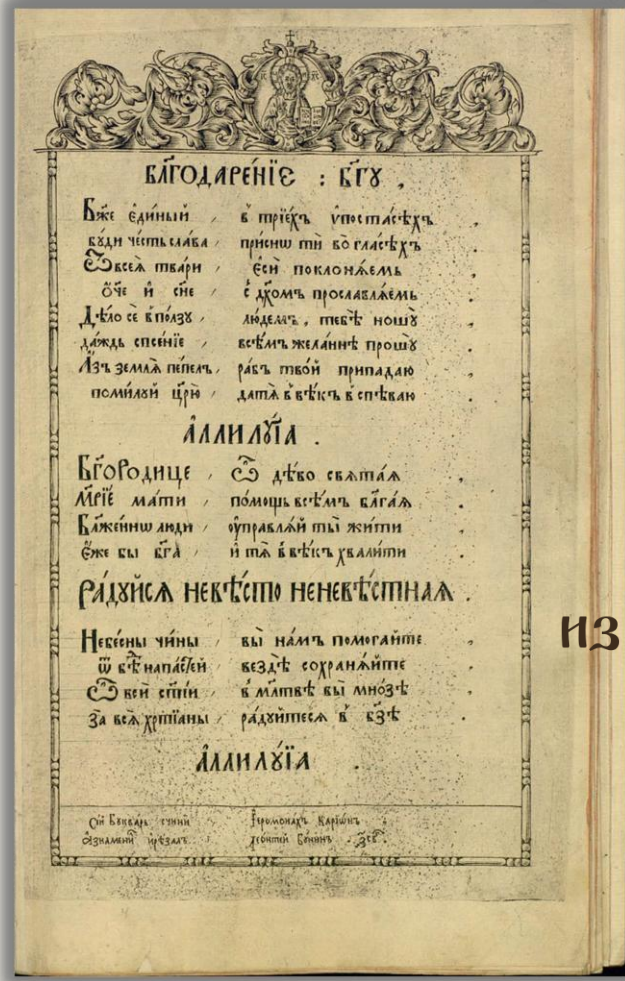 БЛ҃ГОДАРЕ́НЇЕ : БГ҃У ,
Бж҃е є҆ди́ный , в̾ трїе́хъ ѵ҆постасѣхъ ,
бꙋди че́сть слава , при́снѡ ти во̀ гласѣхъ ,
Ѿ всеѧ̀ твари , є҆сѝ поклонѧ́емь
ѻ҆́ч҃е и҆ сн҃е , с̾ дх҃омъ прославлѧ́емь
Дѣ́ло сѐ в̾ по́лзꙋ , лю́демъ , тебѣ̀ ношꙋ̀
да́ждь спсе́нїе , всѣ́мъ жела́ннѣ прошꙋ̀
А҆́зъ землѧ̀ пе́пелъ , ра́бъ твой припадаю
поми́лꙋй цр҃ю̀ , да тѧ̀ в̾ вѣ́къ в̾спѣваю
А҆ЛЛИЛꙋ́ЇА .
Бг҃оРодице , Ѽ дѣ́во свѧта́ѧ ,
Мр҃і́е ма́ти , по́мощь всѣ́мъ бл҃га́ѧ .
Бл҃же́ннѡ люди , ᲂу҆правлѧ́й ты̀ жи́ти
є҆́же бы бг҃а , и҆ тѧ̀ в̾ вѣ́къ хвали́ти .
РА́ДꙋЙСѦ НЕВѢ́СТО НЕНЕВѢ́СТНАѦ .
Небе́сны чи́ны , вы̀ на́мъ помогайте .
ѿ бѣ́ напа́стей вездѐ сохранѧ́йте
Ѽ всѝ ст҃і́и , в̾ мл҃твѣ вы̀ мно́зѣ .
За всѧ̀ хрⷭ҇тїа́ны , ра́дꙋйтесѧ в̾ бз҃ѣ .
А҆ЛЛИЛꙋ́ЇА .
Сі́й Бꙋква́рь І҆еромона́хъ Карїѡ́нъ
и҆рѣ́залъ Леонтей Бꙋнинъ
ИЗ